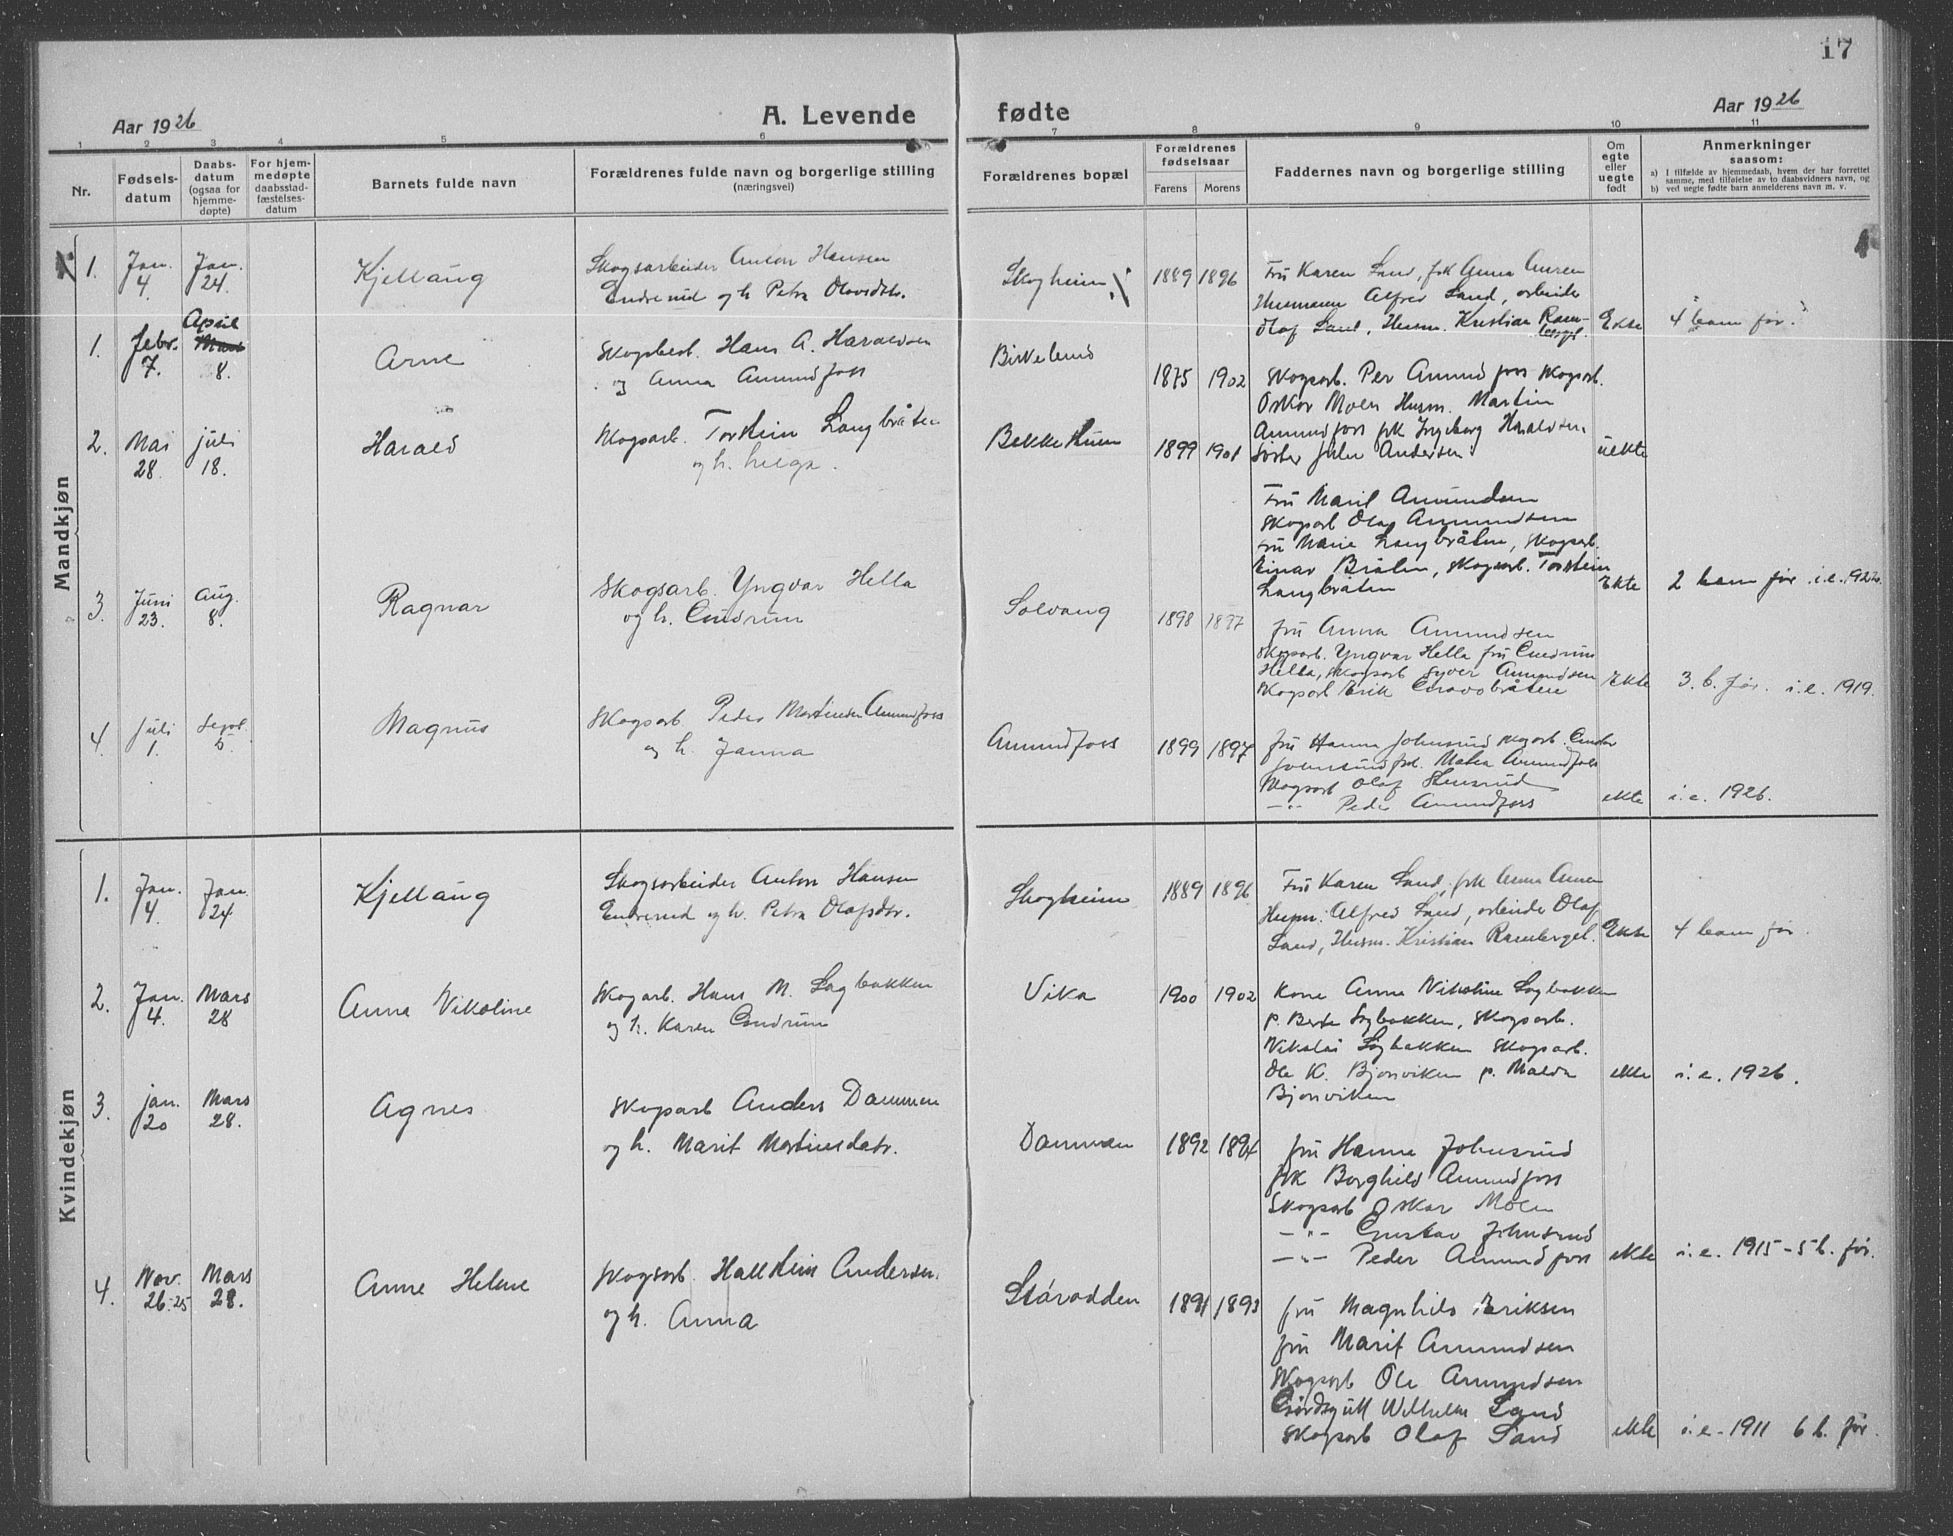 17
Aar 1926
A. Levende fødte
Aar 1926
1 2 3 4 5 6 7 8 9 10 11
Nr.
Fødsels-
datum
Daabs-
datum
(ogsaa for
hjemme-
døpte)
For hjem-
medøpte
daabsstad-
fæstelses-
datum
Barnets fulde navn
Forældrenes fulde navn og borgerlige stilling
(næringsvei)
Forældrenes bopæl
Forældrenes
fødselsaar
Farens Morens
Faddernes navn og borgerlige stilling
Om
egte
eller
uegte
født
Anmerkninger
saasom:
a) I tilfælde av hjemmedaab, hvem der har forrettet
samme, med tilføielse av to daabsvidners navn, og
b) ved uegte fødte barn anmelderens navn m. v.
Mandkjøn
1. Jan. 4. Jan. 24. Kjellaug
Skogsarbeider Anton Hansen
Enderud og h. Petra Olavsdtr.
Skogheim 1889 1896
Fru Karen Sand, frk Anna
Husmann Alfred Sand, arbeider
Olaf Sand, Husm. Kristian
Ekte 4 barn før.
1. febr. 7. April Mars 8. Arne
Skogsarb. Hans A. Haraldsen
og Anna Amundfoss
Birkelund 1875 1902
Skogsarb. Per Amundfoss Skogsarb.
Oskar Moen Husm. Martin
Amundfoss frk Ingeborg Haraldsen
Andersen
uekte
2. Mai 28. juli 18. Harald
Skogsarb. Torstein Langbråten
og h. Helga.
1899 1901
Fru Marit Amundsen
Skogsarb Olaf Amundsen
fru Marie Langbråten, Skogsarb.
Einar Bråten, Skogsarb. Torstein
Langbråten
Ekte 2 barn før i.e. 1922.
3. Juni 23. Aug. 8. Ragnar
Skogsarb. Yngvar Hella
og h. Gudrun
Solvang 1898 1897
fru Anna Amundsen
Skogsarb. Yngvar Hella fru Gudrun
Hella, Skogsarb Syver Amundsen
Skogsarb Erik
Ekte 3. b. før. i.e. 1919.
4. juli 1. Sept. 5. Magnus
Skogsarb. Peder Martinsen Amundfoss
og h. Janna
Amundfoss 1899 1897
fru Hanna Johnsrud Skogsarb. Gustav
Johnsrud frk. Amundfoss
Skogsarb Olaf Stensrud
–"– Peder Amundfoss
ekte i.e. 1926.
Kvindekjøn
1. Jan. 4. Jan. 24 Kjellaug
Skogsarbeider Anton Hansen
Enderud og h. Petra Olafsdtr.
Skogheim 1889 1896
Fru Karen Sand, frk Anna
Husm. Alfred Sand, arbeider Olaf
Sand, Husm. Kristian
Ekte 4 barn før.
2. Jan. 4. Mars 28 Anna Nikoline
Skogarb. Hans M. Sagbakken
og h. Karen Gudrun
Vika 1900 1902
Kone Anna Nikoline Sagbakken
p. Berte Sagbakken, Skogsarb.
Nikolai Sagbakken Skogsarb.
Ole K. Bjonviken p. Malda
Bjonviken
ekte i.e. 1926.
3. jan. 20 Mars 28. Agnes
Skogsarb Anders Dammen
og h. Marit Martinsdatr.
Dammen 1892 1894
fru Hanna Johnsrud
frk Borghild Amundfoss
Skogsarb Oskar Moen
–"– Gustav Johnsrud
–"– Peder Amundfoss
ekte i.e. 1915 - 5 b. før.
4. Nov. 26.-25 Mars 28. Anne Helene
Skogsarb. Hallstein Andersen
og h. Anna
Storodden 1891 1893
fru Magnhild Eriksen
fru Marit Amundsen
Skogsarb Ole Amundsen
Gårdsgutt Wilhelm Sand
Skogsarb Olaf Sand
ekte i.e. 1911 6 b. før.